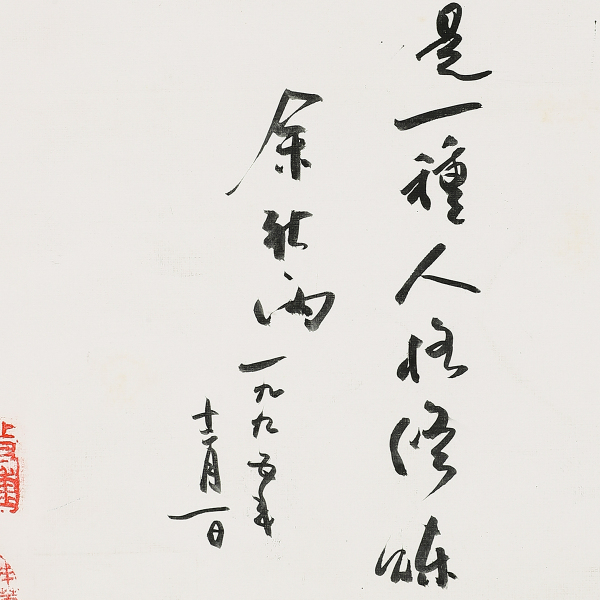 是一種人格修煉
余秋雨 一九九五年
十二月一日